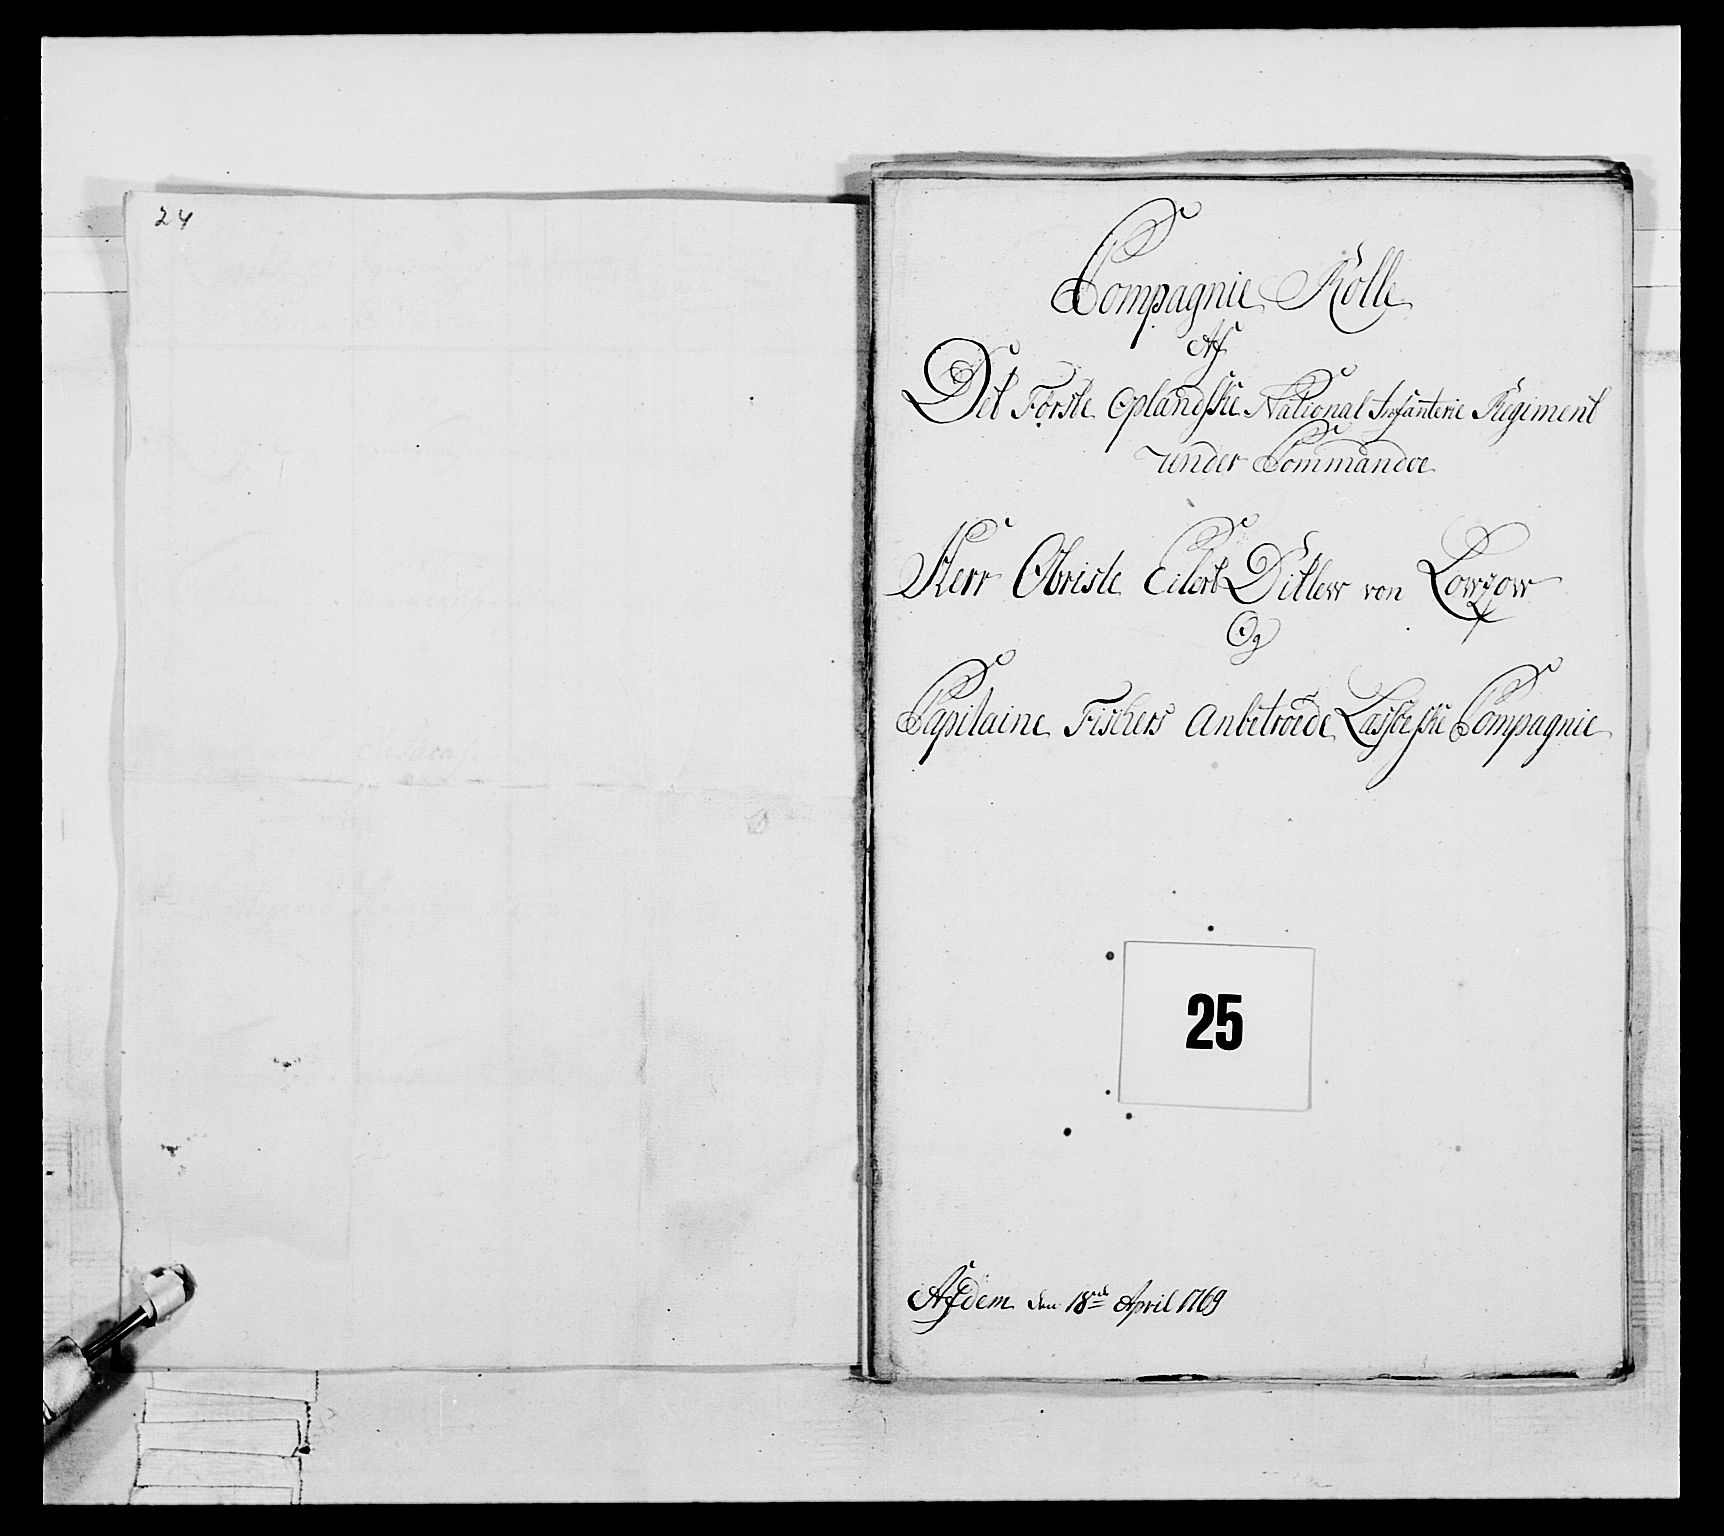 24
Compagnie Rolle
Af
Det Første Oplandske National Infanterie Regiment
under Commandoe
Herr Obriste Eilert Ditlew von Lowzow
Og
Capitaine Fischers Anbetroede Lassøeske Compagnie
25
den 18de April 1769